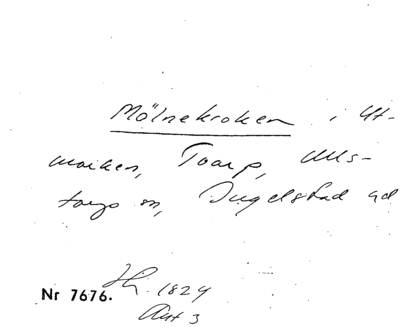 Mölnekroken i Ut-
marken, Toarp, Ulls-
torps sn, Ingelstad hd
1824
Nr 7676.
Akt 3